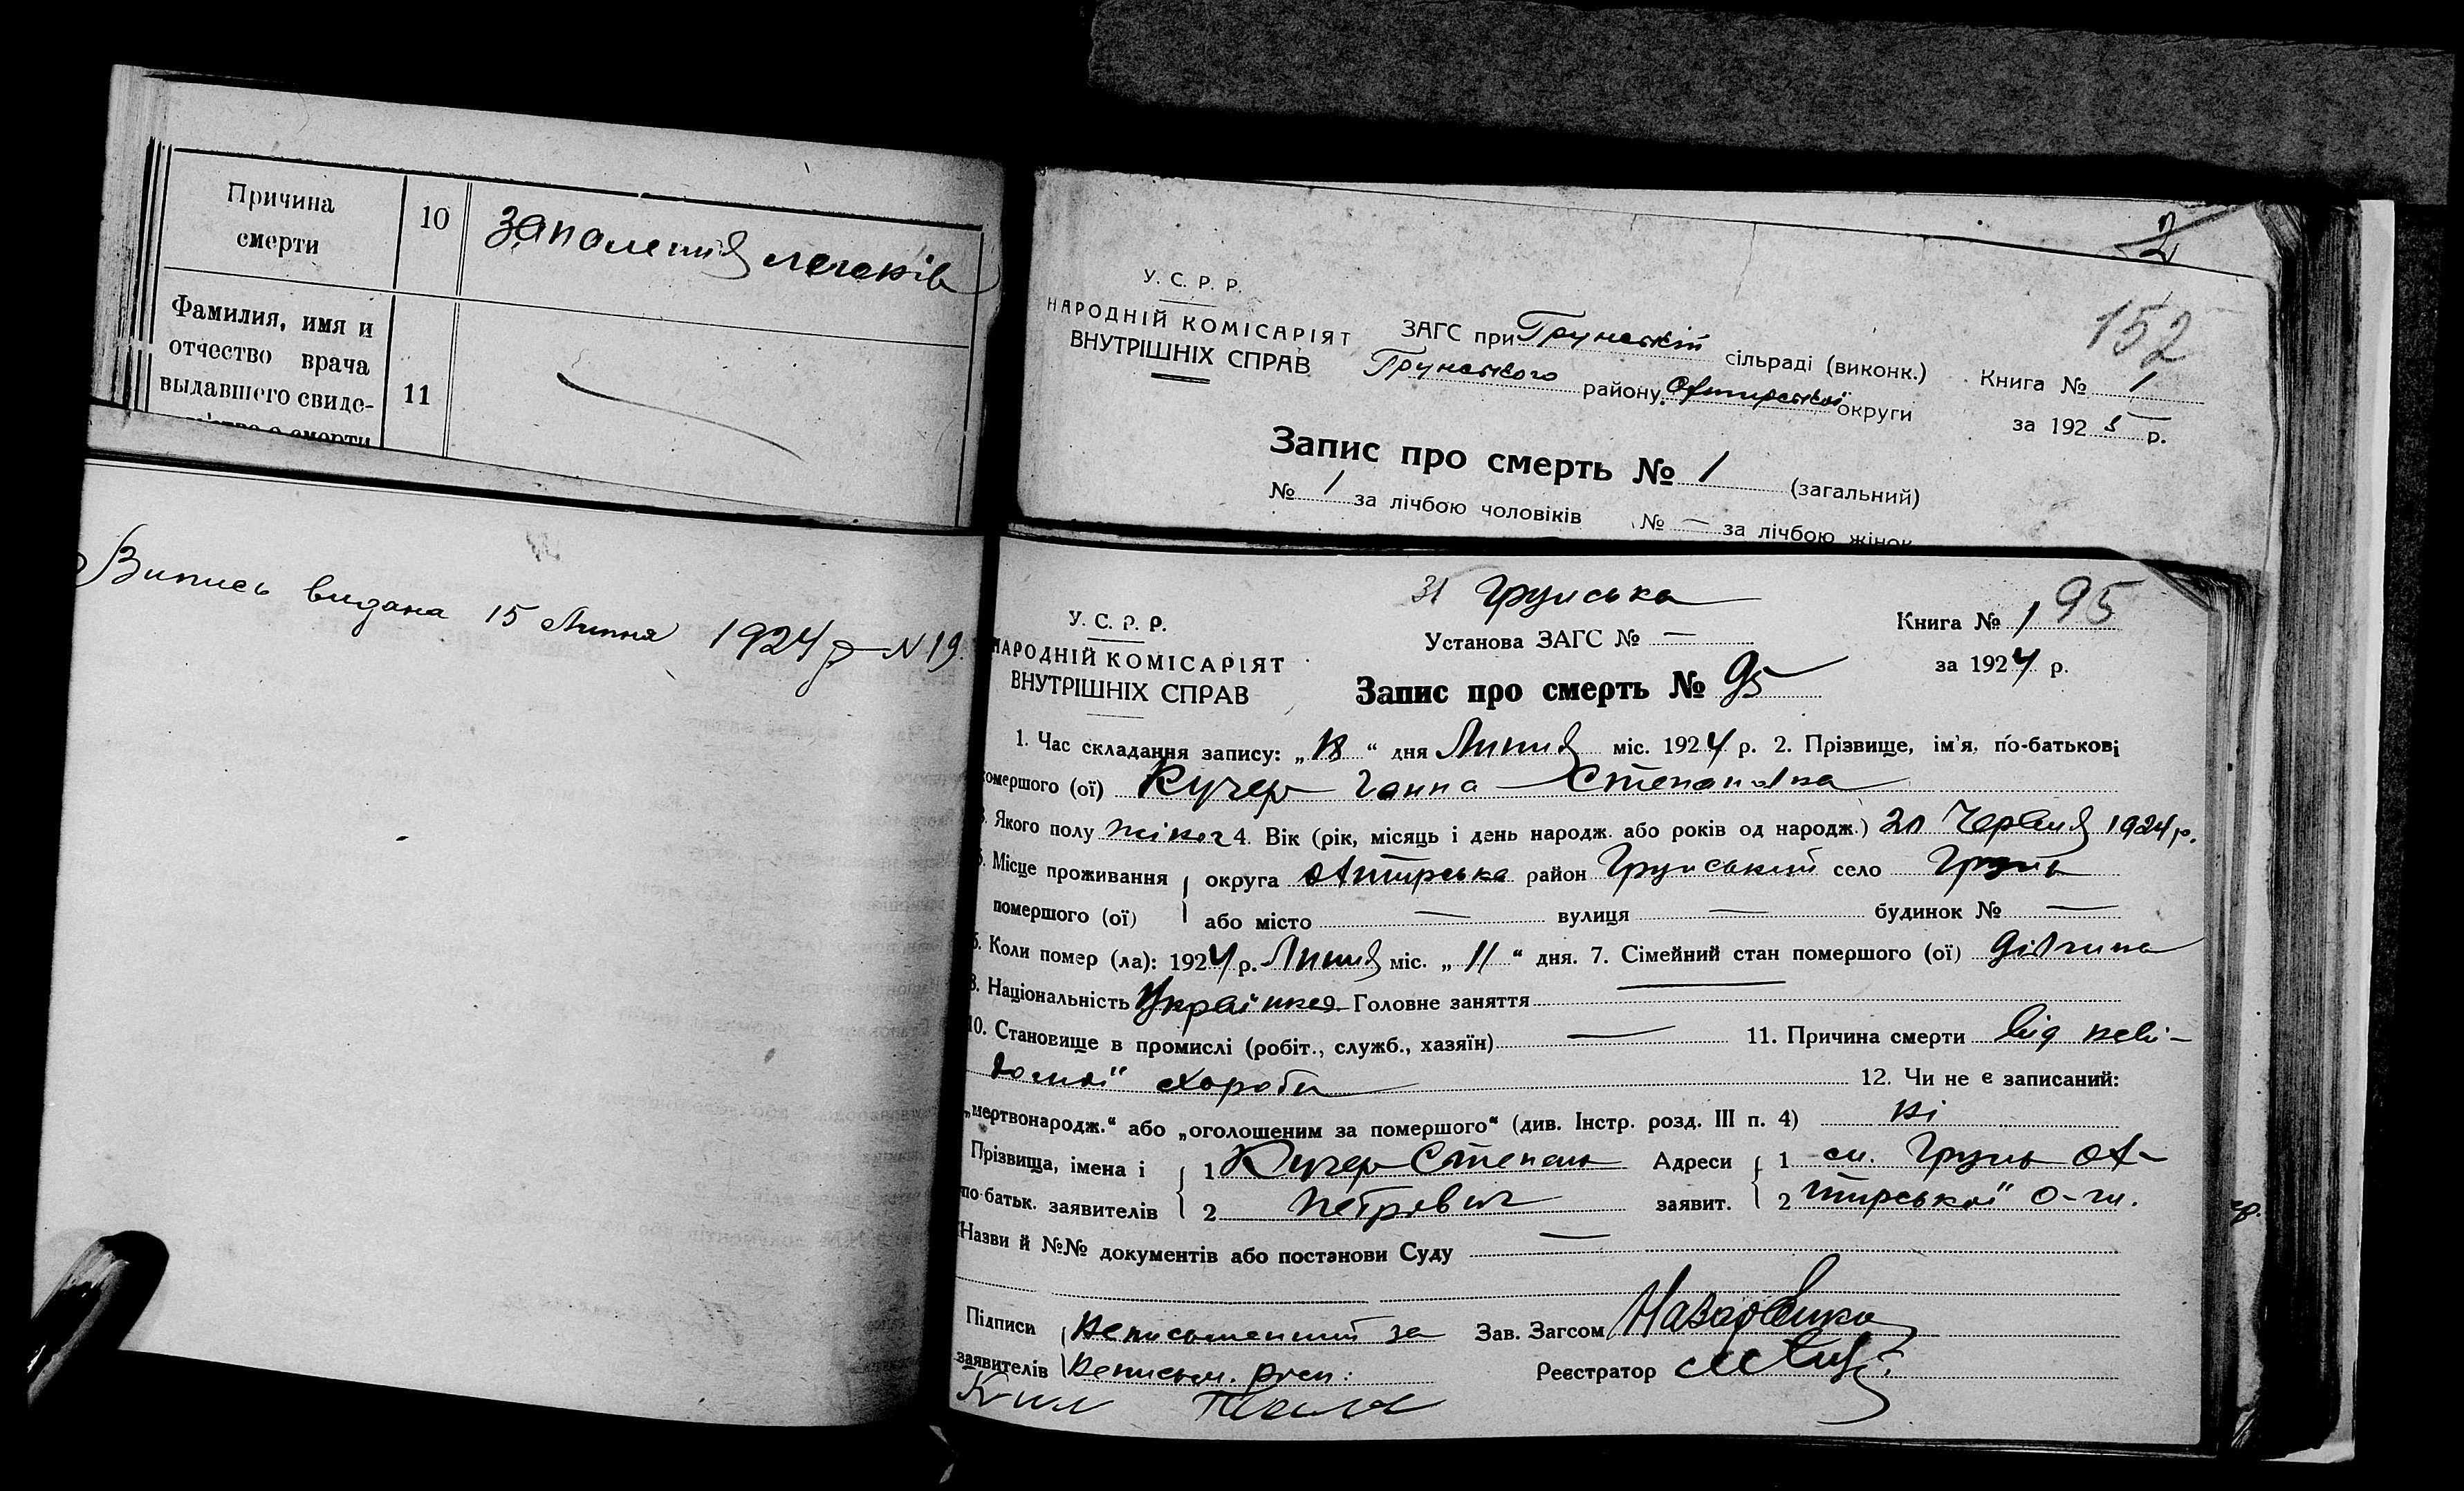 Причина
смерти
10
запаления легенів
Фамилия, имя и
отчество врача
выдавшего свиде-
11
Випись видана 15 Липня 1924 р N 19.
2
152
У. С. Р. Р.
НАРОДНІЙ КОМІСАРІЯТ
ВНУТРІШНІХ СПРАВ
ЗАГС при Грунській сільраді (виконк.)
Грунського району Охтирської округи
Книга № 1
за 1925 р.
Запис про смерть № 1 (загальний)
№ 1 за лічбою чоловіків № — за лічбою жінок
31 Грунська
95
У. С. Р. Р.
НАРОДНІЙ КОМІСАРІЯТ
ВНУТРІШНІХ СПРАВ
Установа ЗАГС № —
Книга № 1
за 1924 р.
Запис про смерть № 95
1. Час складання запису: „ “ дня Липня міс. 1924 р. 2. Прізвище, ім'я, по-батькові
помершого (ої) Кучер Ганна Степановна
3. Якого полу жіноч 4. Вік (рік, місяць і день народж. або років од народж.) 20 Червня 1924 р.
5. Місце проживання округа Охтирська район Грунський село Грунь
помершого (ої) або місто — вулиця — будинок № —
6. Коли помер (ла): 1924 р. Липня міс. „11“ дня. 7. Сімейний стан помершого (ої) дівчина
8. Національність Українка 9. Головне заняття —
10. Становище в промислі (робіт., служб., хазяїн) — 11. Причина смерти від неві-
домої хороби 12. Чи не є записаний:
„мертвонародж.“ або „оголошеним за помершого“ (див. Інстр. розд. III п. 4) ні
Прізвища, імена і 1 Кучер Степан Адреси 1 сл. Грунь Ох-
по-батьк. заявителів 2 Петрович заявит. 2 тирської о-ги.
Назви й №№ документів або постанови Суду —
Підписи неписьменний за Зав. Загсом
заявителів неписьм. росп: Реєстратор